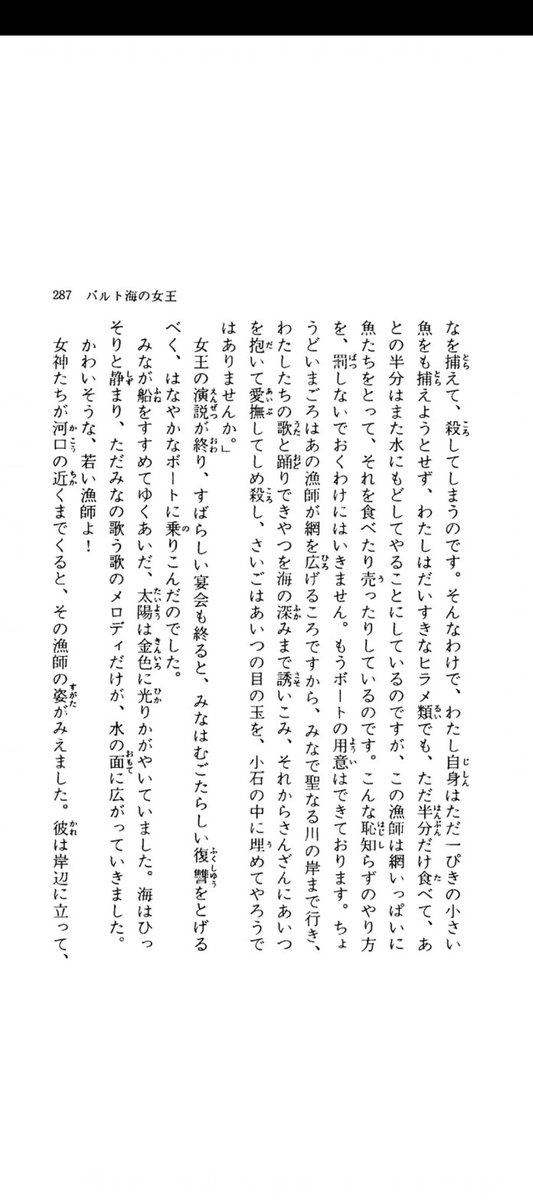 287 バルト海の女王
なを捕えて、殺してしまうのです。そんなわけで、わたし自身はただ一ぴきの小さい
魚をも捕えようとせず、わたしはだいすきなヒラメ類でも、ただ半分だけ食べて、あ
との半分はまた水にもどしてやることにしているのですが、この漁師は網いっぱいに
魚たちをとって、それを食べたり売ったりしているのです。こんな恥知らずのやり方
を、罰しないでおくわけにはいきません。もうボートの用意はできております。ちょ
うどいまごろはあの漁師が網を広げるころですから、みなで聖なる川の岸まで行き、
わたしたちの歌と踊りできやつを海の深みまで誘いこみ、それからさんざんにあいつ
を抱いて愛撫してしめ殺し、さいごはあいつの目の玉を、小石の中に埋めてやろうで
はありませんか。」
女王の演説が終り、すばらしい宴会も終ると、みなはむごたらしい復讐をとげる
べく、はなやかなボートに乗りこんだのでした。
みなが船をすすめてゆくあいだ、太陽は金色に光りかがやいていました。海はひっ
そりと静まり、ただみなの歌う歌のメロディだけが、水の面に広がっていきました。
かわいそうな、若い漁師よ！
女神たちが河口の近くまでくると、その漁師の姿がみえました。彼は岸辺に立って、